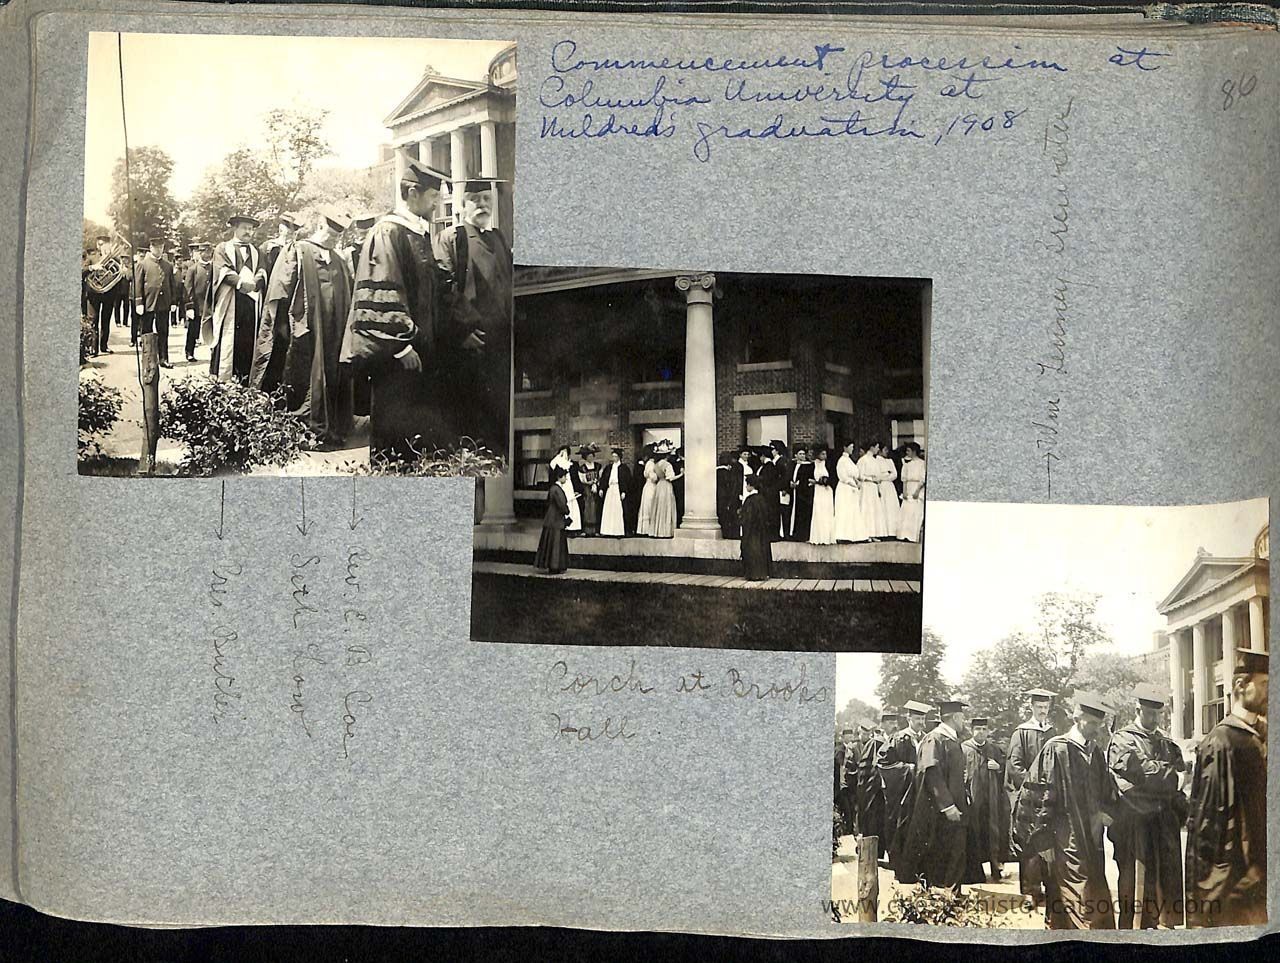 Commencement procession at
Columbia University at
Mildred's graduation, 1908
86
Wm Tenney Brewster
Rev. E. B. Coe
Seth Low
Pres Butler
Porch at Brooks
Hall.
www.chesterhistoricalsociety.com